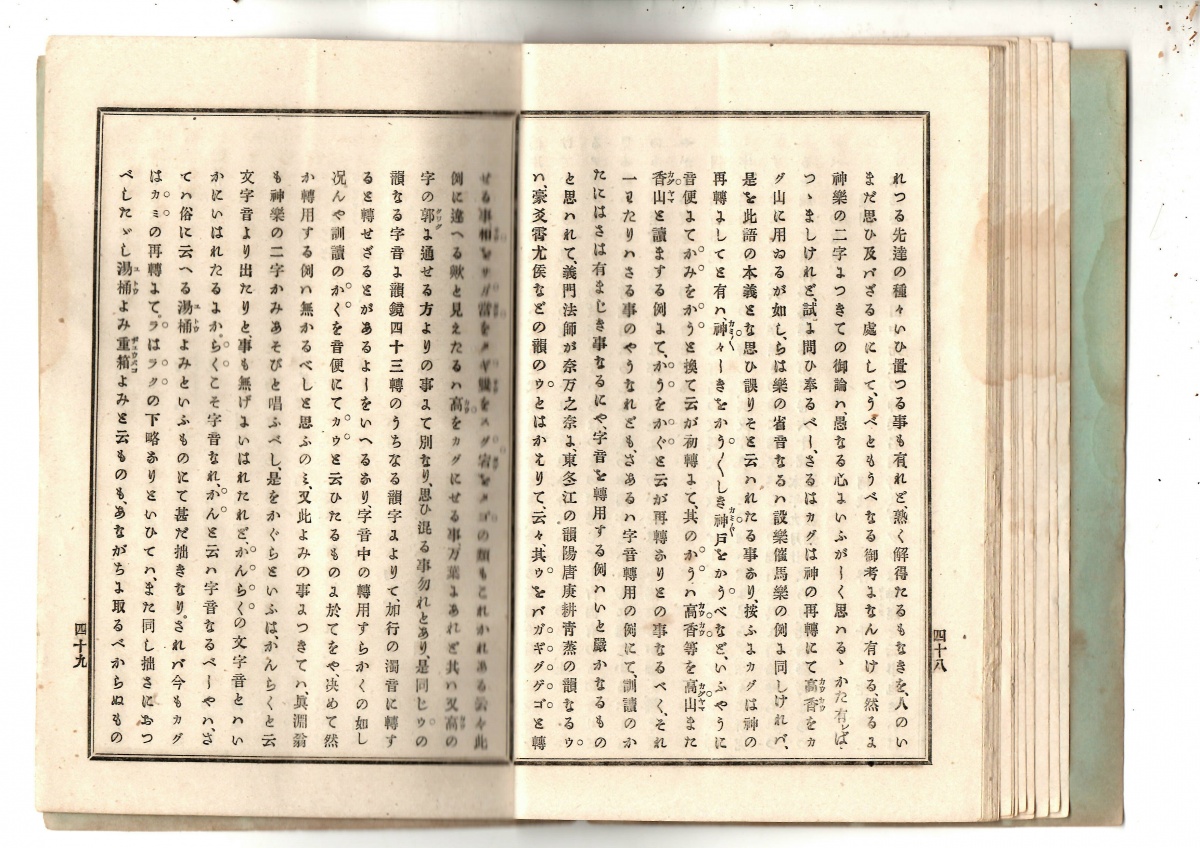 れつる先達の種々いひ置つる事も有れど、熟く解得たるもなきを、人のい
まだ思ひ及バざる處にして、うべともうべなる御考よなん有ける、然るよ
神樂の二字よつきての御論ハ、愚なる心よいふがしく思ハるゝかた有レば、
つゝましけれど、試よ問ひ奉るべし、さるはカグは神の再轉にて高香をカ
グ山に用ゐるが如し、らは樂の省音なるハ設樂催馬樂の例よ同しけれバ、
是を此語の本義とな思ひ誤りそと云ハれたる事あり、按ふよカグは神の
再轉よしてと有ハ、神々しきをかう〲しき神戸をかうべなど、いふやうに
音便よてかみをかうと換て云が初轉よて、其のかうハ高香等を高山また
香山と讀まする例よて、かうをかぐと云が再轉ありとの事なるべく、それ
一わたりハさる事のやうなれども、さあるハ字音轉用の例にて、訓讀のか
たにはさは有まじき事なるにや、字音を轉用する例ハいと嚴かなるもの
と思ハれて、義門法師が奈万之奈よ、東冬江の韻陽唐庚耕青蒸の韻なるゥ
ハ、豪爻宵尤侯などの韻のゥとはかはりて、云々、其ゥをバガギグゲゴと轉
四十八
せる事相をサガ當をタギ
の類もこれかれある云々此
例に違へる歟と見えたるハ高をカグにせる事万葉よあれど其ハ又高の
字の郭よ通せる方よりの事よて別なり、思ひ混る事勿れとあり、是同じゥの
韻なる字音よ韻鏡四十三轉のうちなる韻字よよりて、加行の濁音に轉す
ると轉せざるとがあるよしをいへるあり字音中の轉用すらかくの如し
况んや訓讀のかくを音便にてカゥと云ひたるものよ於てをや、决めて然
か轉用する例ハ無かるべしと思ふのミ、又此よみの事よつきてハ、眞淵翁
も神樂の二字かみあそびと唱ふべし、是をかぐらといふは、かんらくと云
文字音より出たりと事も無げよいはれたれど、かんらくの文字音とハい
かにいはれたるよか。らくこそ字音なれ、かんと云ハ字音なるべしやハ、さ
てハ俗に云へる湯桶よみといふものにて甚だ拙きなり。されバ今もカグ
はカミの再轉よて。ラはラクの下略ありといひてハ、また同し拙さにおつ
べしたゞし湯桶よみ重箱よみと云ものも、あながちよ取るべからぬもの
四十九